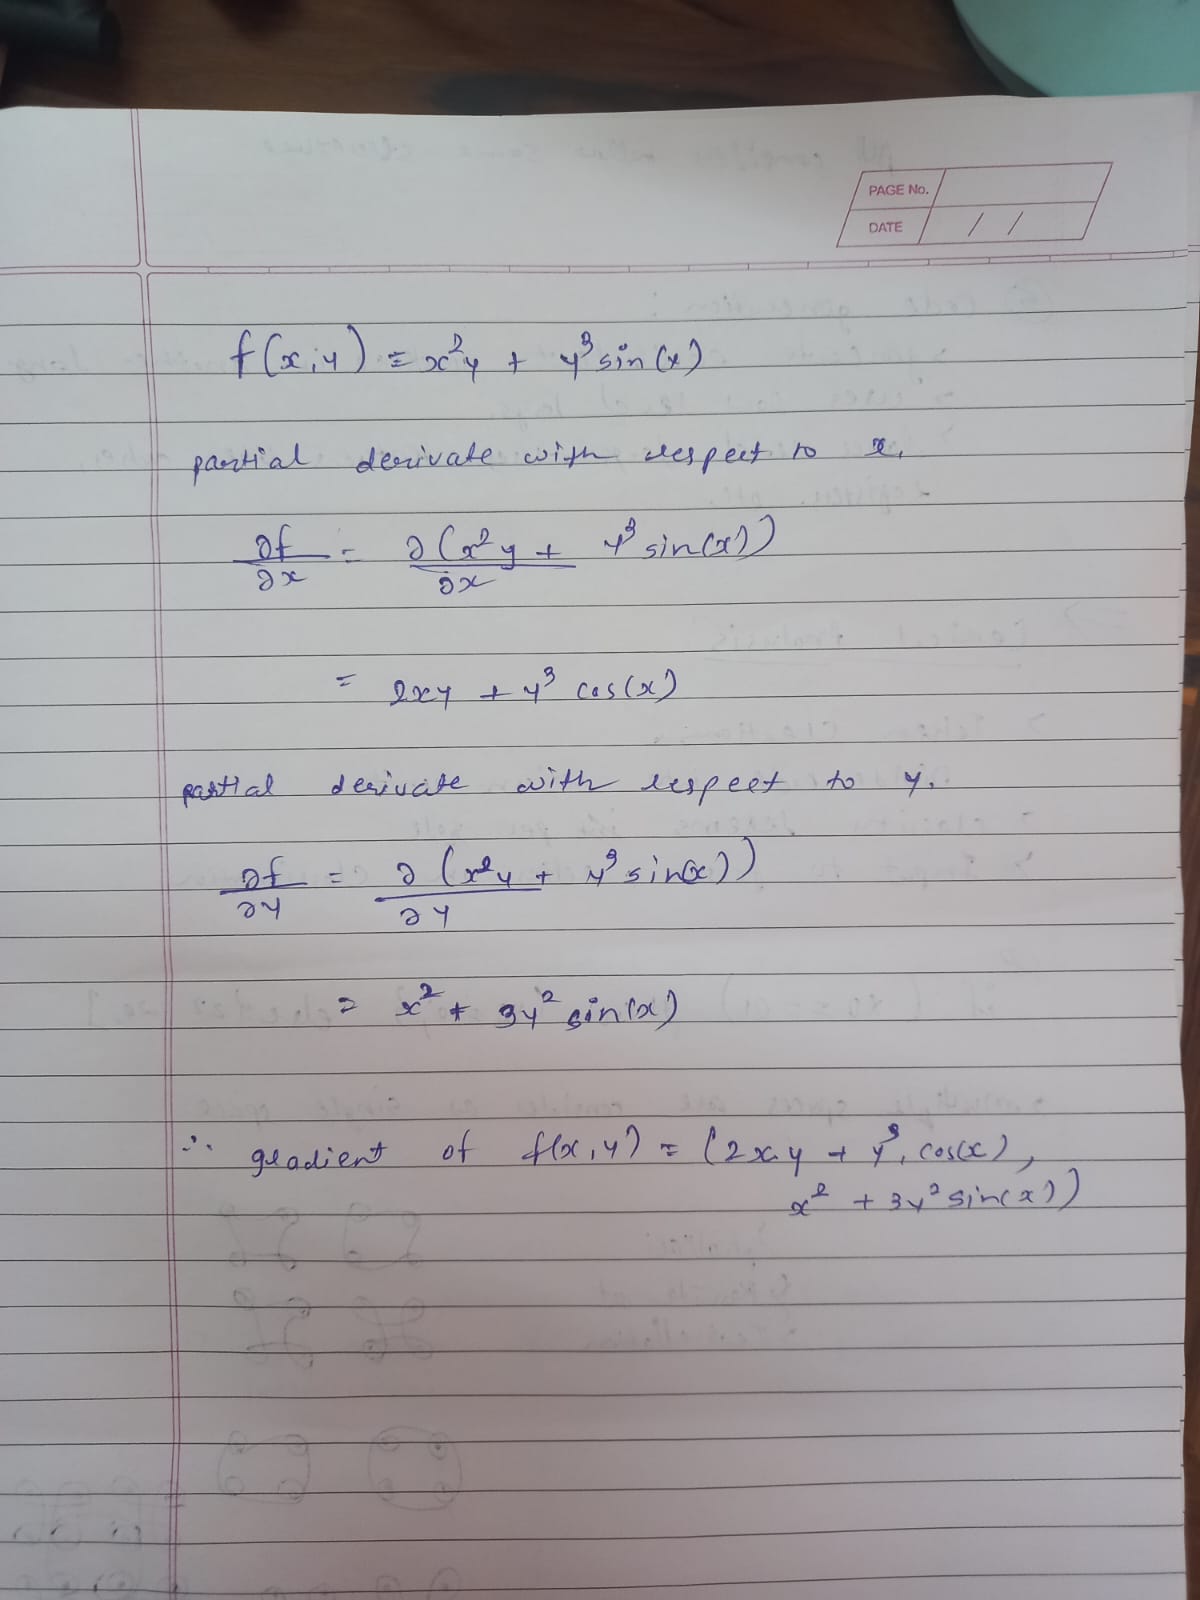 PAGE No.
DATE / /
f(x,y) = x²y + y³ sin(x)
partial derivate with respect to x,
∂f/∂x = ∂(x²y + y³ sin(x))/∂x
= 2xy + y³ cos(x)
partial derivate with respect to y.
∂f/∂y = ∂(x²y + y³ sin(x))/∂y
= x² + 3y² sin(x)
∴ gradient of f(x,y) = (2xy + y³, cos(x),
x² + 3y² sin(x))